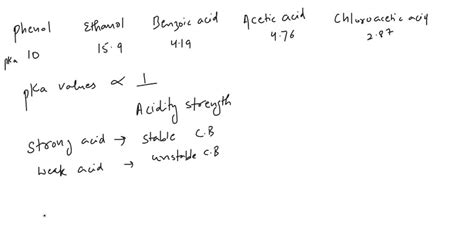 phenol Ethanol Benzoic acid Acetic acid Chloroacetic acid
pKa 10 15.9 4.19 4.76 2.87
pKa values ∝ 1
Acidity strength
Strong acid → stable C.B
Weak acid → unstable C.B